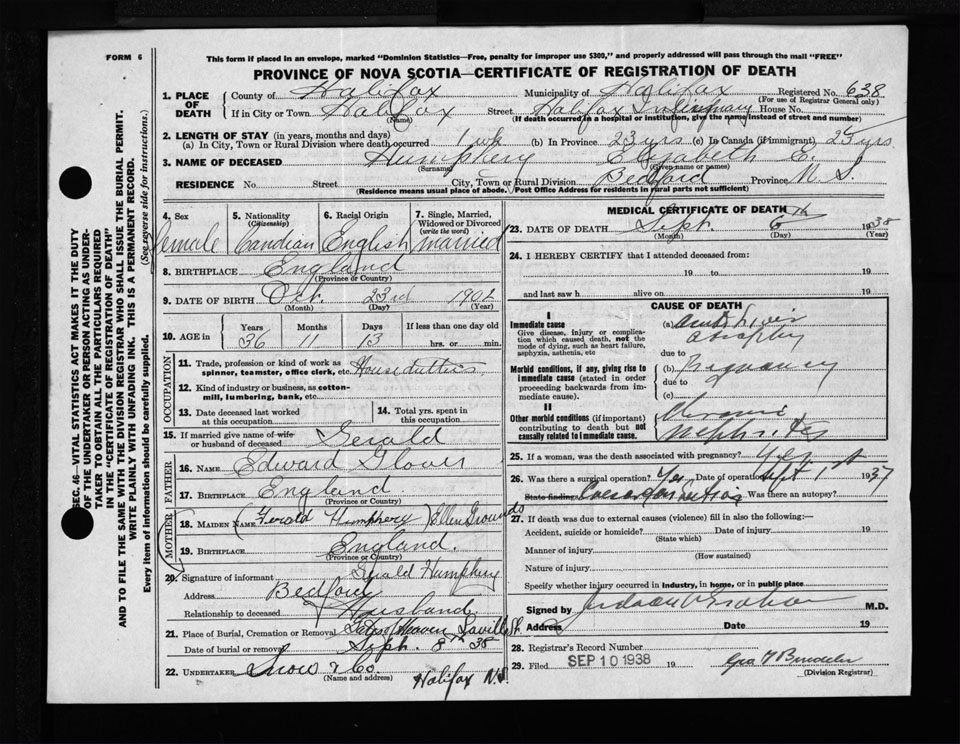 FORM 6
This form if placed in an envelope, marked "Dominion Statistics—Free, penalty for improper use $300," and properly addressed will pass through the mail "FREE"
PROVINCE OF NOVA SCOTIA—CERTIFICATE OF REGISTRATION OF DEATH
1. PLACE OF DEATH County of Halifax Municipality of Halifax Registered No. 638
(For use of Registrar General only)
If in City or Town Halifax Street Halifax Infirmary House No.
(Name) (If death occurred in a hospital or institution, give its name instead of street and number)
2. LENGTH OF STAY (in years, months and days)
(a) In City, Town or Rural Division where death occurred 1 wk (b) In Province 23 yrs (c) In Canada (if immigrant) 23 yrs
3. NAME OF DECEASED Humphery Elizabeth E.
(Surname) (Given name or names)
RESIDENCE No. Street City, Town or Rural Division Bedford Province N. S.
(Residence means usual place of abode. Post Office Address for residents in rural parts not sufficient)
4. Sex
female
5. Nationality
(Citizenship)
Candian
6. Racial Origin
English
7. Single, Married, Widowed or Divorced
(write the word)
married
8. BIRTHPLACE England
(Province or Country)
9. DATE OF BIRTH Oct. 23rd 1902
(Month) (Day) (Year)
10. AGE in Years Months Days If less than one day old
36 11 13 hrs. or min.
OCCUPATION
11. Trade, profession or kind of work as spinner, teamster, office clerk, etc. House duties
12. Kind of industry or business, as cotton-mill, lumbering, bank, etc.
13. Date deceased last worked at this occupation
14. Total yrs. spent in this occupation
15. If married give name of wife or husband of deceased Gerald
FATHER
16. NAME Edward Glover
17. BIRTHPLACE England
(Province or Country)
MOTHER
18. MAIDEN NAME (Gerald Humphery) Ellen Grounds
19. BIRTHPLACE England.
(Province or Country)
20. Signature of informant Gerald Humphery
Address Bedford
Relationship to deceased Husband
21. Place of Burial, Cremation or Removal Gate of Heaven Saville
Date of burial or removal Sept. 8th 38
22. UNDERTAKER Snow & Co Halifax N.S
(Name and address)
MEDICAL CERTIFICATE OF DEATH
23. DATE OF DEATH Sept. 6th 1938
(Month) (Day) (Year)
24. I HEREBY CERTIFY that I attended deceased from:
19 to 19
and last saw h alive on 19
CAUSE OF DEATH
I
Immediate cause
Give disease, injury or complication which caused death, not the mode of dying, such as heart failure, asphyxia, asthenia, etc
(a) acute liver
atrophy
due to
Morbid conditions, if any, giving rise to immediate cause (stated in order proceeding backwards from immediate cause).
(b) Pregnancy
due to
(c)
II
Other morbid conditions (if important) contributing to death but not causally related to immediate cause.
Chronic
nephrites
25. If a woman, was the death associated with pregnancy? yes
26. Was there a surgical operation? Yes Date of operation Sept 1st 1937
State finding Caesarian section Was there an autopsy?
27. If death was due to external causes (violence) fill in also the following:—
Accident, suicide or homicide? Date of injury 19
(State which)
Manner of injury
(How sustained)
Nature of injury
Specify whether injury occurred in industry, in home, or in public place
Signed by M.D.
Address Date 19
28. Registrar's Record Number
29. Filed SEP 10 1938 19
(Division Registrar)
SEC. 46—VITAL STATISTICS ACT MAKES IT THE DUTY
OF THE UNDERTAKER OR PERSON ACTING AS UNDERTAKER
TO OBTAIN ALL THE PARTICULARS REQUIRED
IN THE "CERTIFICATE OF REGISTRATION OF DEATH"
AND TO FILE THE SAME WITH THE DIVISION REGISTRAR WHO SHALL ISSUE THE BURIAL PERMIT.
WRITE PLAINLY WITH UNFADING INK. THIS IS A PERMANENT RECORD.
Every item of information should be carefully supplied. (See reverse side for instructions.)